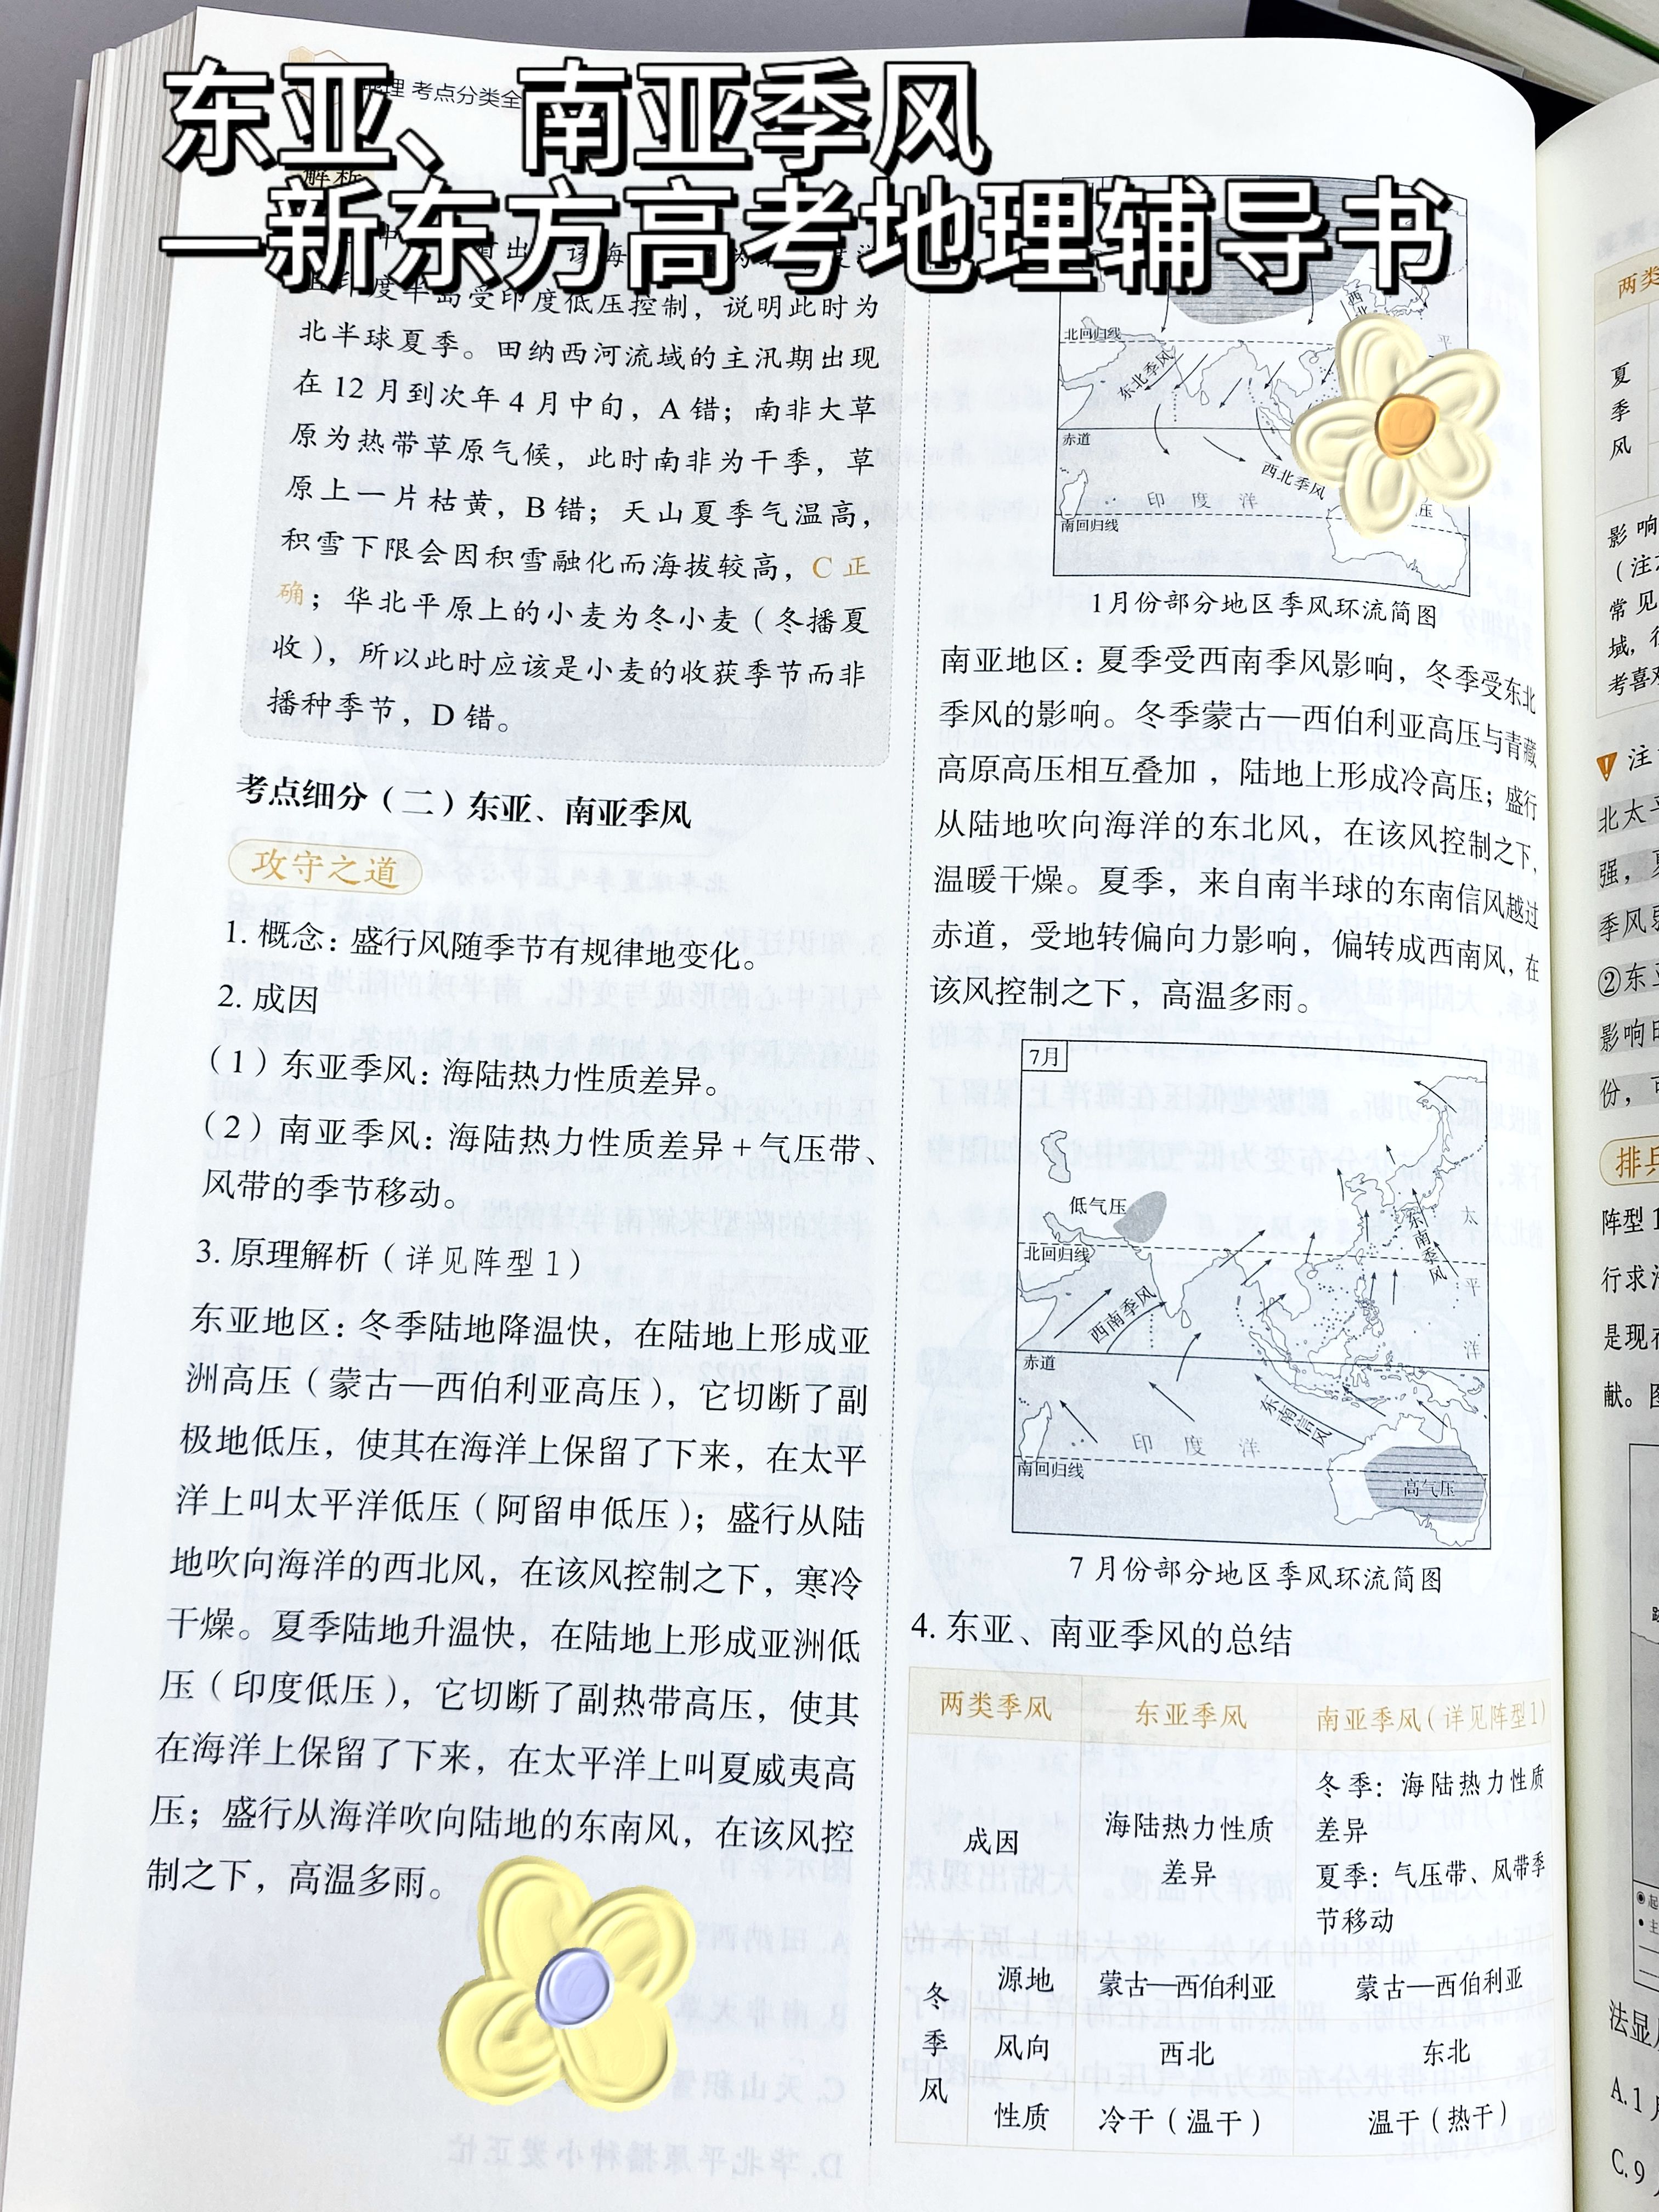 东亚、南亚季风
—新东方高考地理辅导书
地理 考点分类全
解析
印度半岛受印度低压控制，说明此时为
北半球夏季。田纳西河流域的主汛期出现
在 12 月到次年 4 月中旬，A 错；南非大草
原为热带草原气候，此时南非为干季，草
原上一片枯黄，B 错；天山夏季气温高，
积雪下限会因积雪融化而海拔较高，C 正
确；华北平原上的小麦为冬小麦（冬播夏
收），所以此时应该是小麦的收获季节而非
播种季节，D 错。
考点细分（二）东亚、南亚季风
攻守之道
1. 概念：盛行风随季节有规律地变化。
2. 成因
（1）东亚季风：海陆热力性质差异。
（2）南亚季风：海陆热力性质差异 + 气压带、
风带的季节移动。
3. 原理解析（详见阵型 1）
东亚地区：冬季陆地降温快，在陆地上形成亚
洲高压（蒙古—西伯利亚高压），它切断了副
极地低压，使其在海洋上保留了下来，在太平
洋上叫太平洋低压（阿留申低压）；盛行从陆
地吹向海洋的西北风，在该风控制之下，寒冷
干燥。夏季陆地升温快，在陆地上形成亚洲低
压（印度低压），它切断了副热带高压，使其
在海洋上保留了下来，在太平洋上叫夏威夷高
压；盛行从海洋吹向陆地的东南风，在该风控
制之下，高温多雨。
西
北
北回归线
平
东北季风
赤道
西北季风
印 度 洋
压
南回归线
1月份部分地区季风环流简图
南亚地区：夏季受西南季风影响，冬季受东北
季风的影响。冬季蒙古—西伯利亚高压与青藏
高原高压相互叠加，陆地上形成冷高压；盛行
从陆地吹向海洋的东北风，在该风控制之下，
温暖干燥。夏季，来自南半球的东南信风越过
赤道，受地转偏向力影响，偏转成西南风，在
该风控制之下，高温多雨。
7月
低气压
北回归线
东南季风
太
平
洋
西南季风
赤道
东南信风
印 度 洋
南回归线
高气压
7 月份部分地区季风环流简图
4. 东亚、南亚季风的总结
两类季风 东亚季风 南亚季风（详见阵型1）
成因
海陆热力性质
差异
冬季：海陆热力性质
差异
夏季：气压带、风带季
节移动
冬季风
源地 蒙古—西伯利亚 蒙古—西伯利亚
风向 西北 东北
性质 冷干（温干） 温干（热干）
两类
夏
季
风
影响
常见
域，
考喜
注
北太平
强，夏
季风
②东亚
影响
份，
排兵
阵型 1
行求
是现在
献。
法显
A.1
C.9